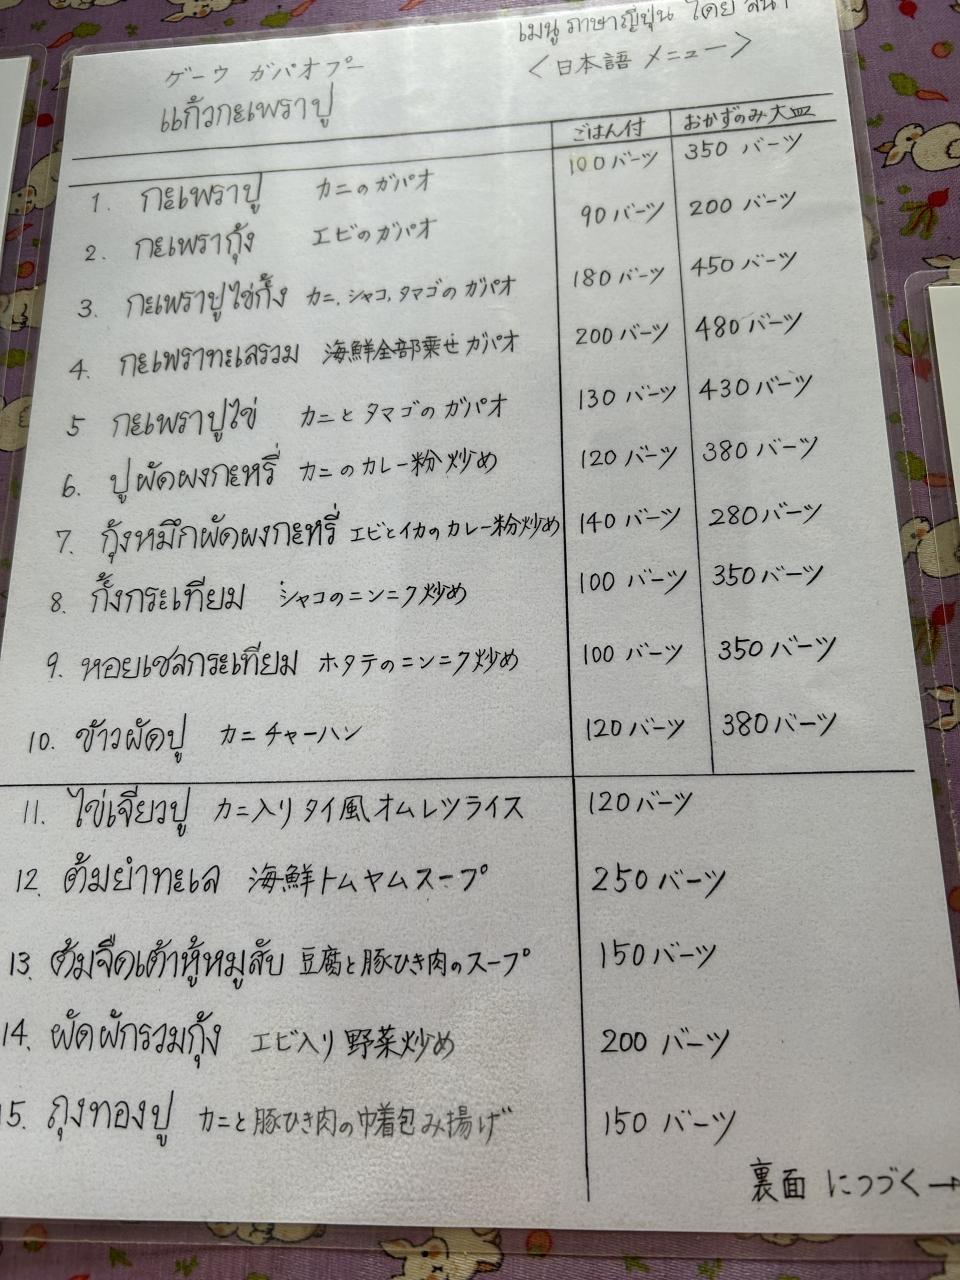 เมนูภาษาญี่ปุ่น โดย
<日本語 メニュー>
ゲーウ ガパオプー
แก้วกะเพราปู
ごはん付 おかずのみ大皿
1. กะเพราปู カニのガパオ 100バーツ 350バーツ
2. กะเพรากุ้ง エビのガパオ 90バーツ 200バーツ
3. กะเพราปูไข่กั้ง カニ,シャコ,タマゴのガパオ 180バーツ 450バーツ
4. กะเพราทะเลรวม 海鮮全部乗せガパオ 200バーツ 480バーツ
5 กะเพราปูไข่ カニとタマゴのガパオ 130バーツ 430バーツ
6. ปูผัดผงกะหรี่ カニのカレー粉炒め 120バーツ 380バーツ
7. กุ้งหมึกผัดผงกะหรี่ エビとイカのカレー粉炒め 140バーツ 280バーツ
8. กั้งกระเทียม シャコのニンニク炒め 100バーツ 350バーツ
9. หอยเชลกระเทียม ホタテのニンニク炒め 100バーツ 350バーツ
10. ข้าวผัดปู カニチャーハン 120バーツ 380バーツ
11. ไข่เจียวปู カニ入りタイ風オムレツライス 120バーツ
12. ต้มยำทะเล 海鮮トムヤムスープ 250バーツ
13. ต้มจืดเต้าหู้หมูสับ 豆腐と豚ひき肉のスープ 150バーツ
14. ผัดผักรวมกุ้ง エビ入り野菜炒め 200バーツ
15. ถุงทองปู カニと豚ひき肉の巾着包み揚げ 150バーツ
裏面につづく→